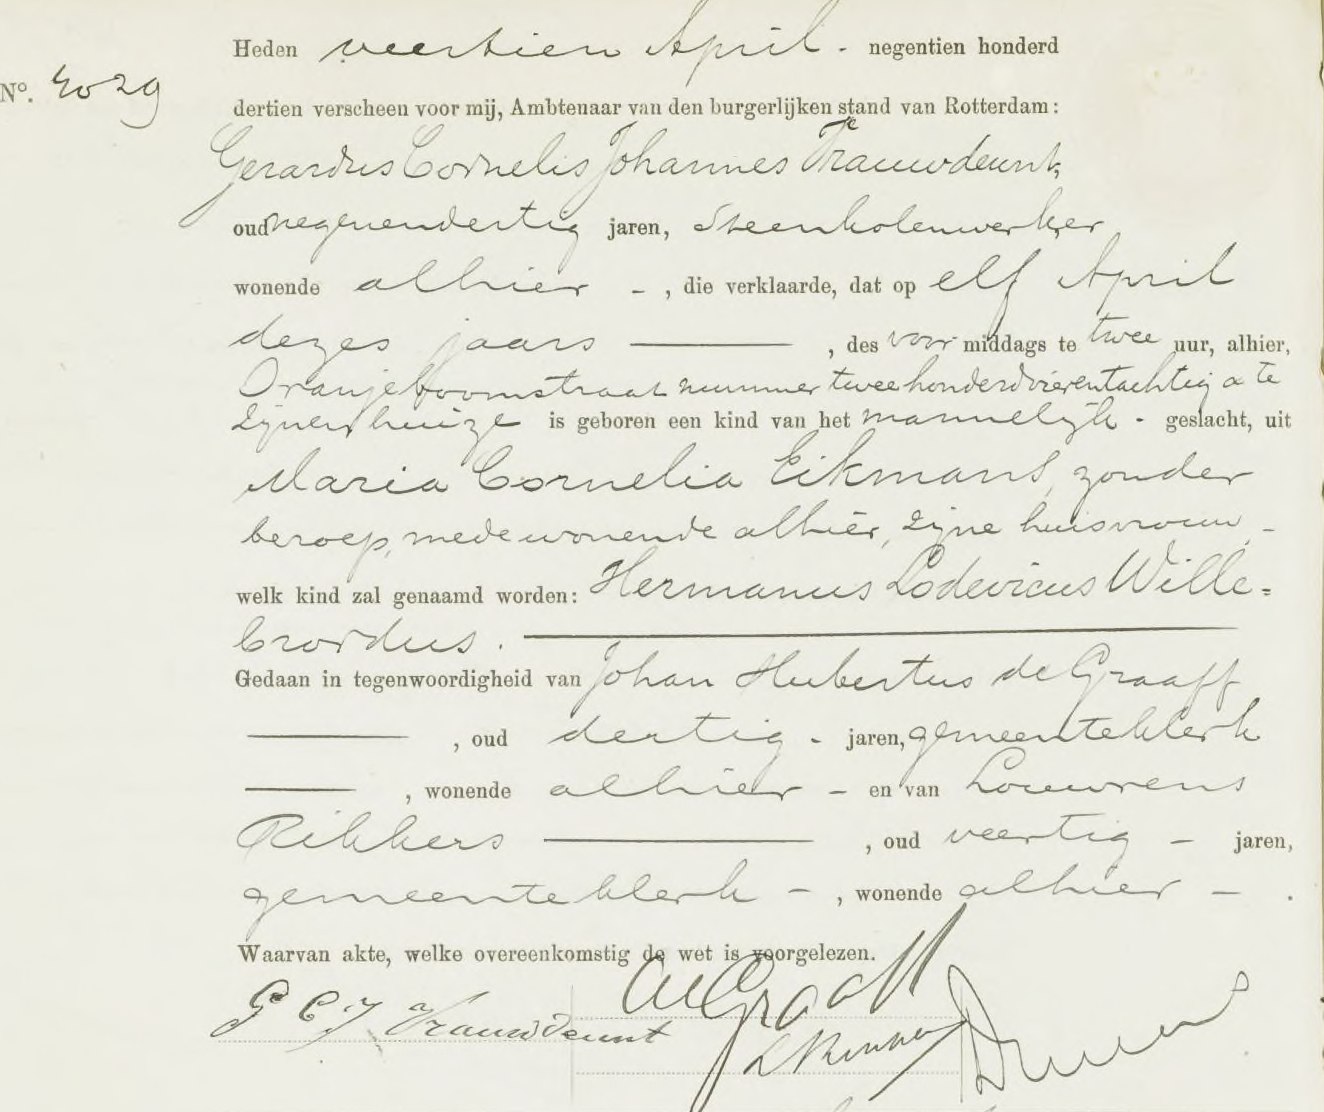 Heden veertien April - negentien honderd
N°. 4029
dertien verscheen voor mij, Ambtenaar van den burgerlijken stand van Rotterdam:
Gerardus Cornelis Johannes Trauwdeunt,
oud negenendertig jaren, Steenkolenwerker
wonende alhier - , die verklaarde, dat op elf April
dezes jaars , des voor middags te twee uur, alhier,
Oranjeboomstraat nummer tweehonderdvierentachtig a te
zijnen huize is geboren een kind van het mannelijk - geslacht, uit
Maria Cornelia Eikmans, zonder
beroep, mede wonende alhier, zijne huisvrouw -
welk kind zal genaamd worden: Hermanus Lodevicus Wille=
brordus.
Gedaan in tegenwoordigheid van Johan Hubertus de Graaff
, oud dertig - jaren, gemeenteklerk
, wonende alhier - en van Louwrens
Rikkers , oud veertig - jaren,
gemeenteklerk - , wonende alhier - .
Waarvan akte, welke overeenkomstig de wet is voorgelezen.
G C J Trauwdeunt
de Graaff